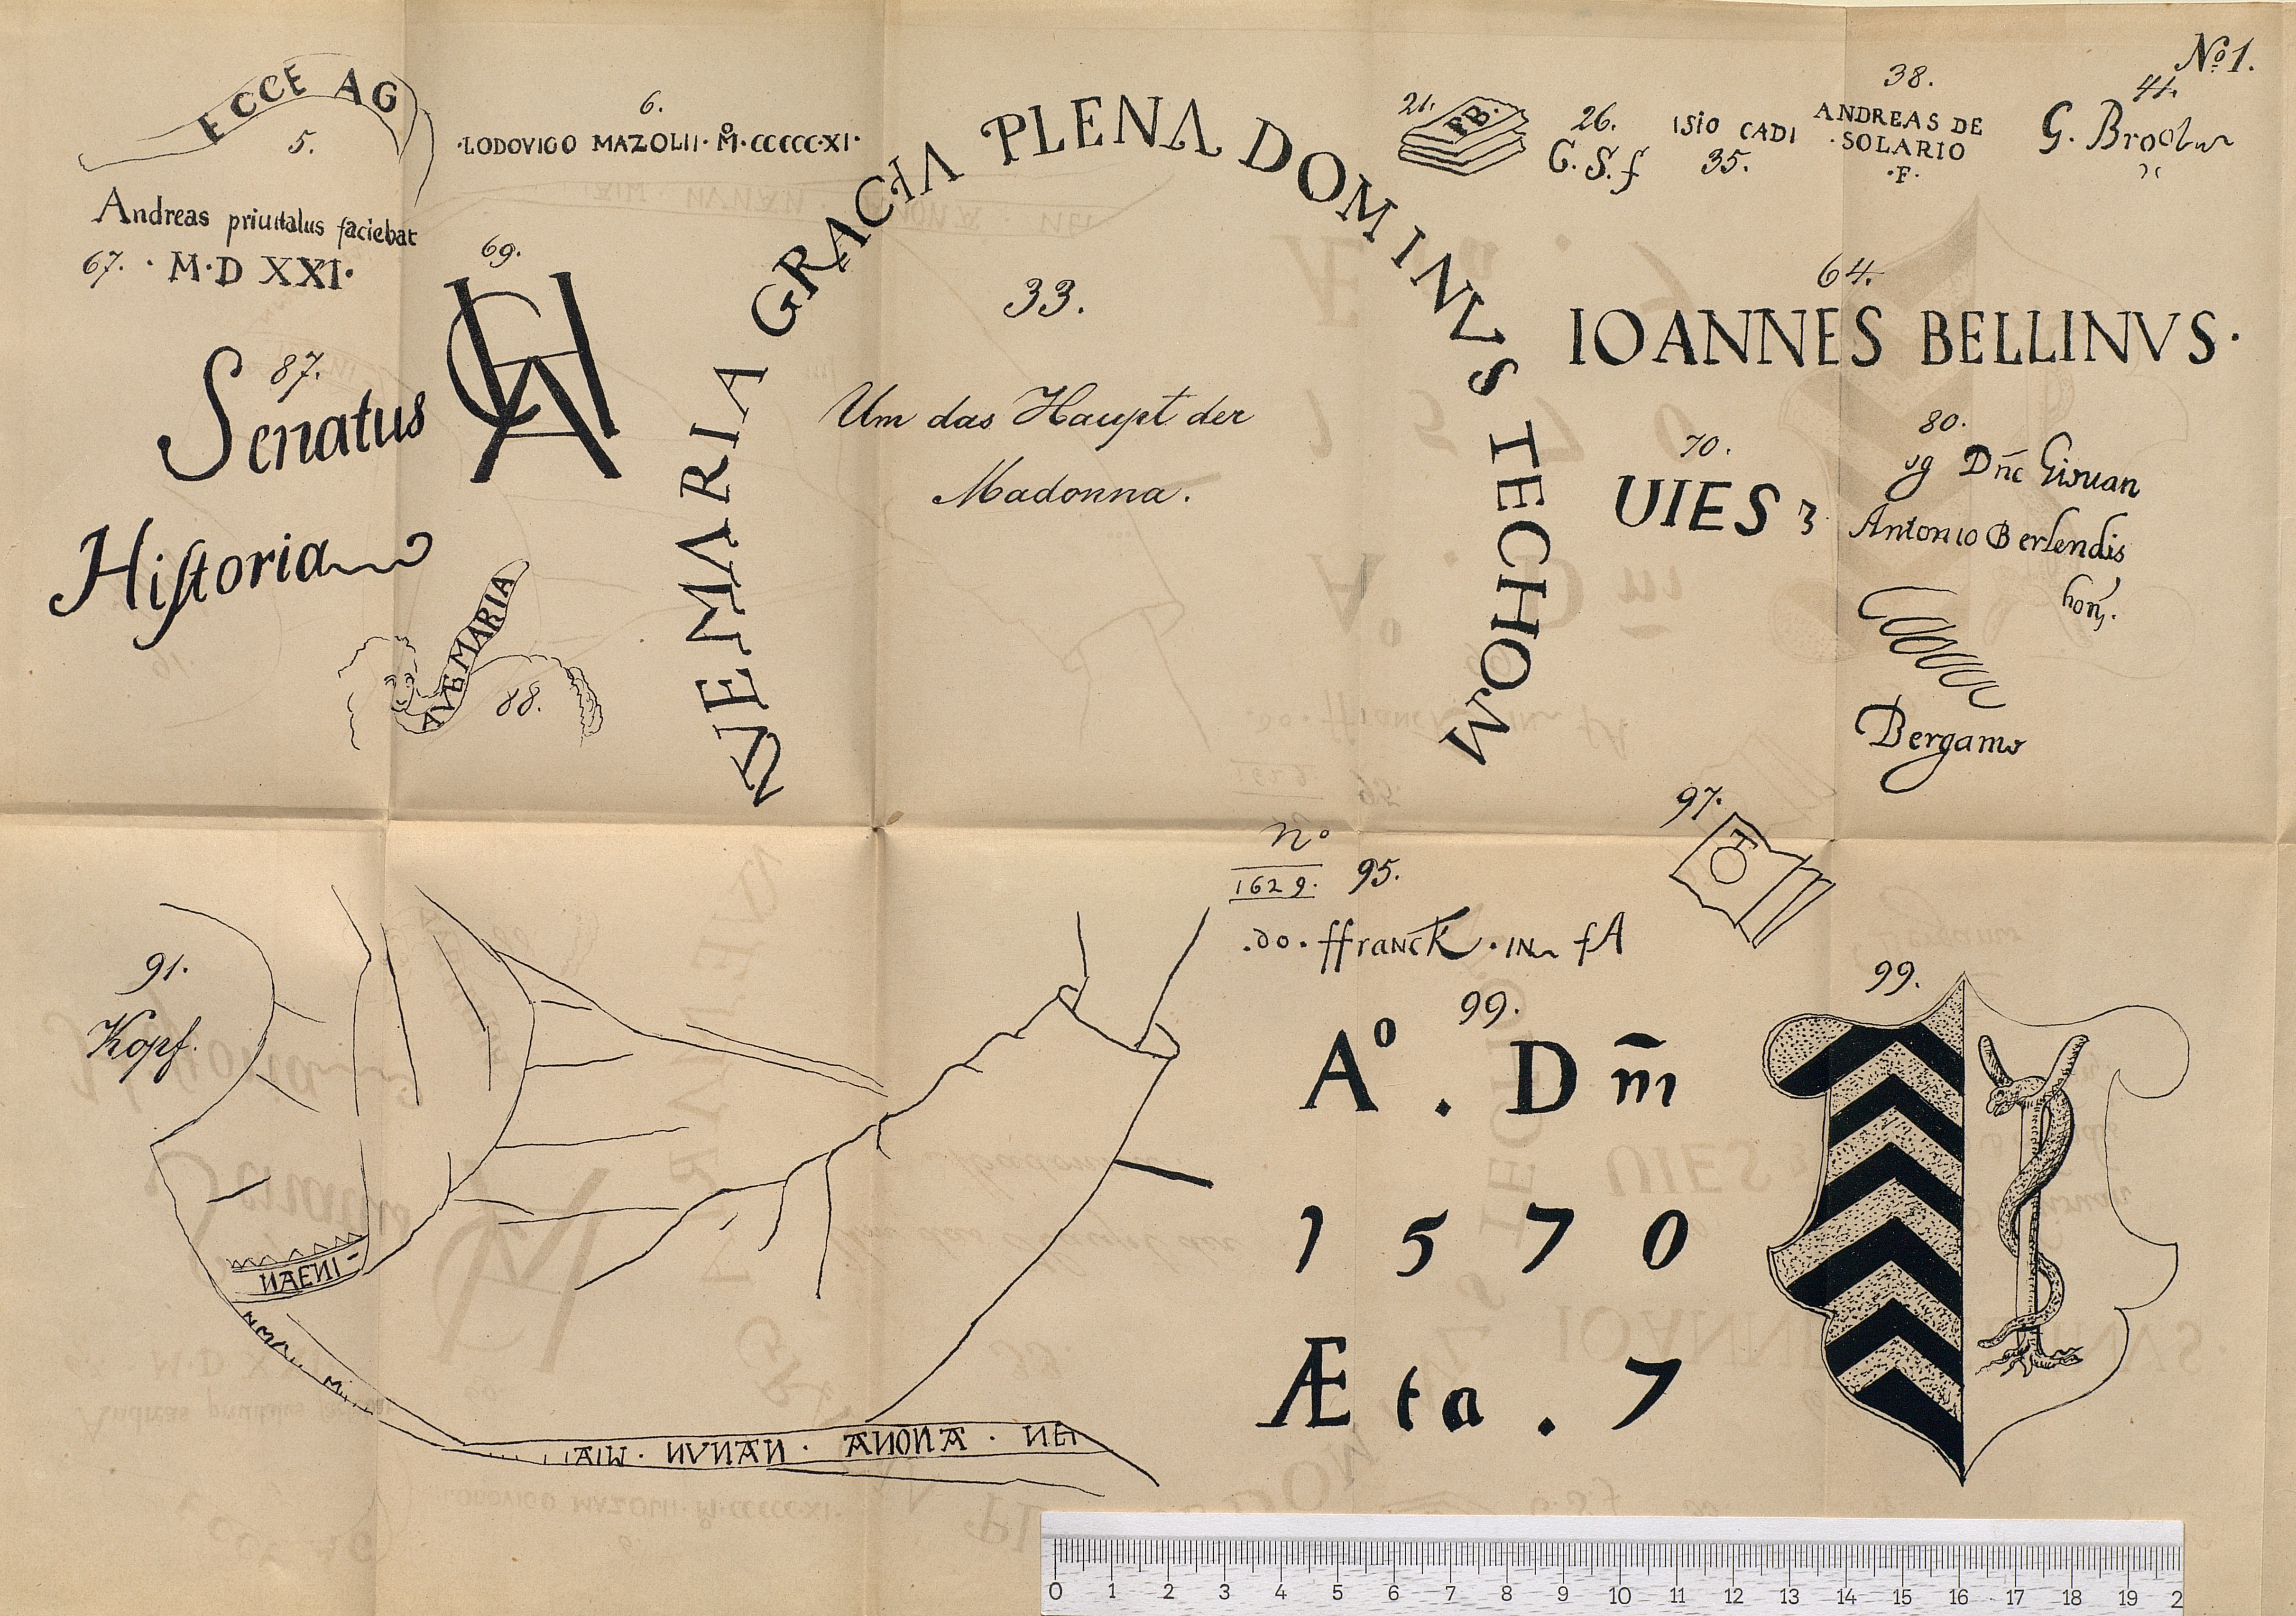 No 1.
ECCE AG
5.
6.
·LODOVICO MAZOLII· M·CCCCC·XI·
21.
FB.
26.
G.S.f
ISIO CADI
35.
38.
ANDREAS DE
·SOLARIO
·F·
41.
Andreas priuitalus faciebat
67. · M·D XXI·
69.
CHA
AVE MARIA GRACIA PLENA DOMINVS TECHOM
33.
Um das Haupt der
Madonna.
64.
IOANNES BELLINVS·
87.
Senatus
Hiſtoria
70.
UIES 3
80.
Antonio Berlendis
Bergamo
AVE MARIA
88.
97.
No
1629. 95.
.do. ffranck · IN fA
91.
Kopf.
99.
Ao . Dm̄
1570
Æta . 7
99.
ИAEИI-
MIAI · ИVИAИ · AИOИA · ИEI
0 1 2 3 4 5 6 7 8 9 10 11 12 13 14 15 16 17 18 19 2